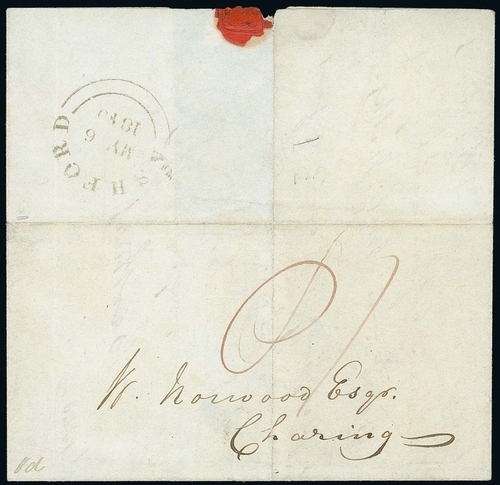 ASHFORD
MY 6
1840
W. Norwood Esqr.
Charing